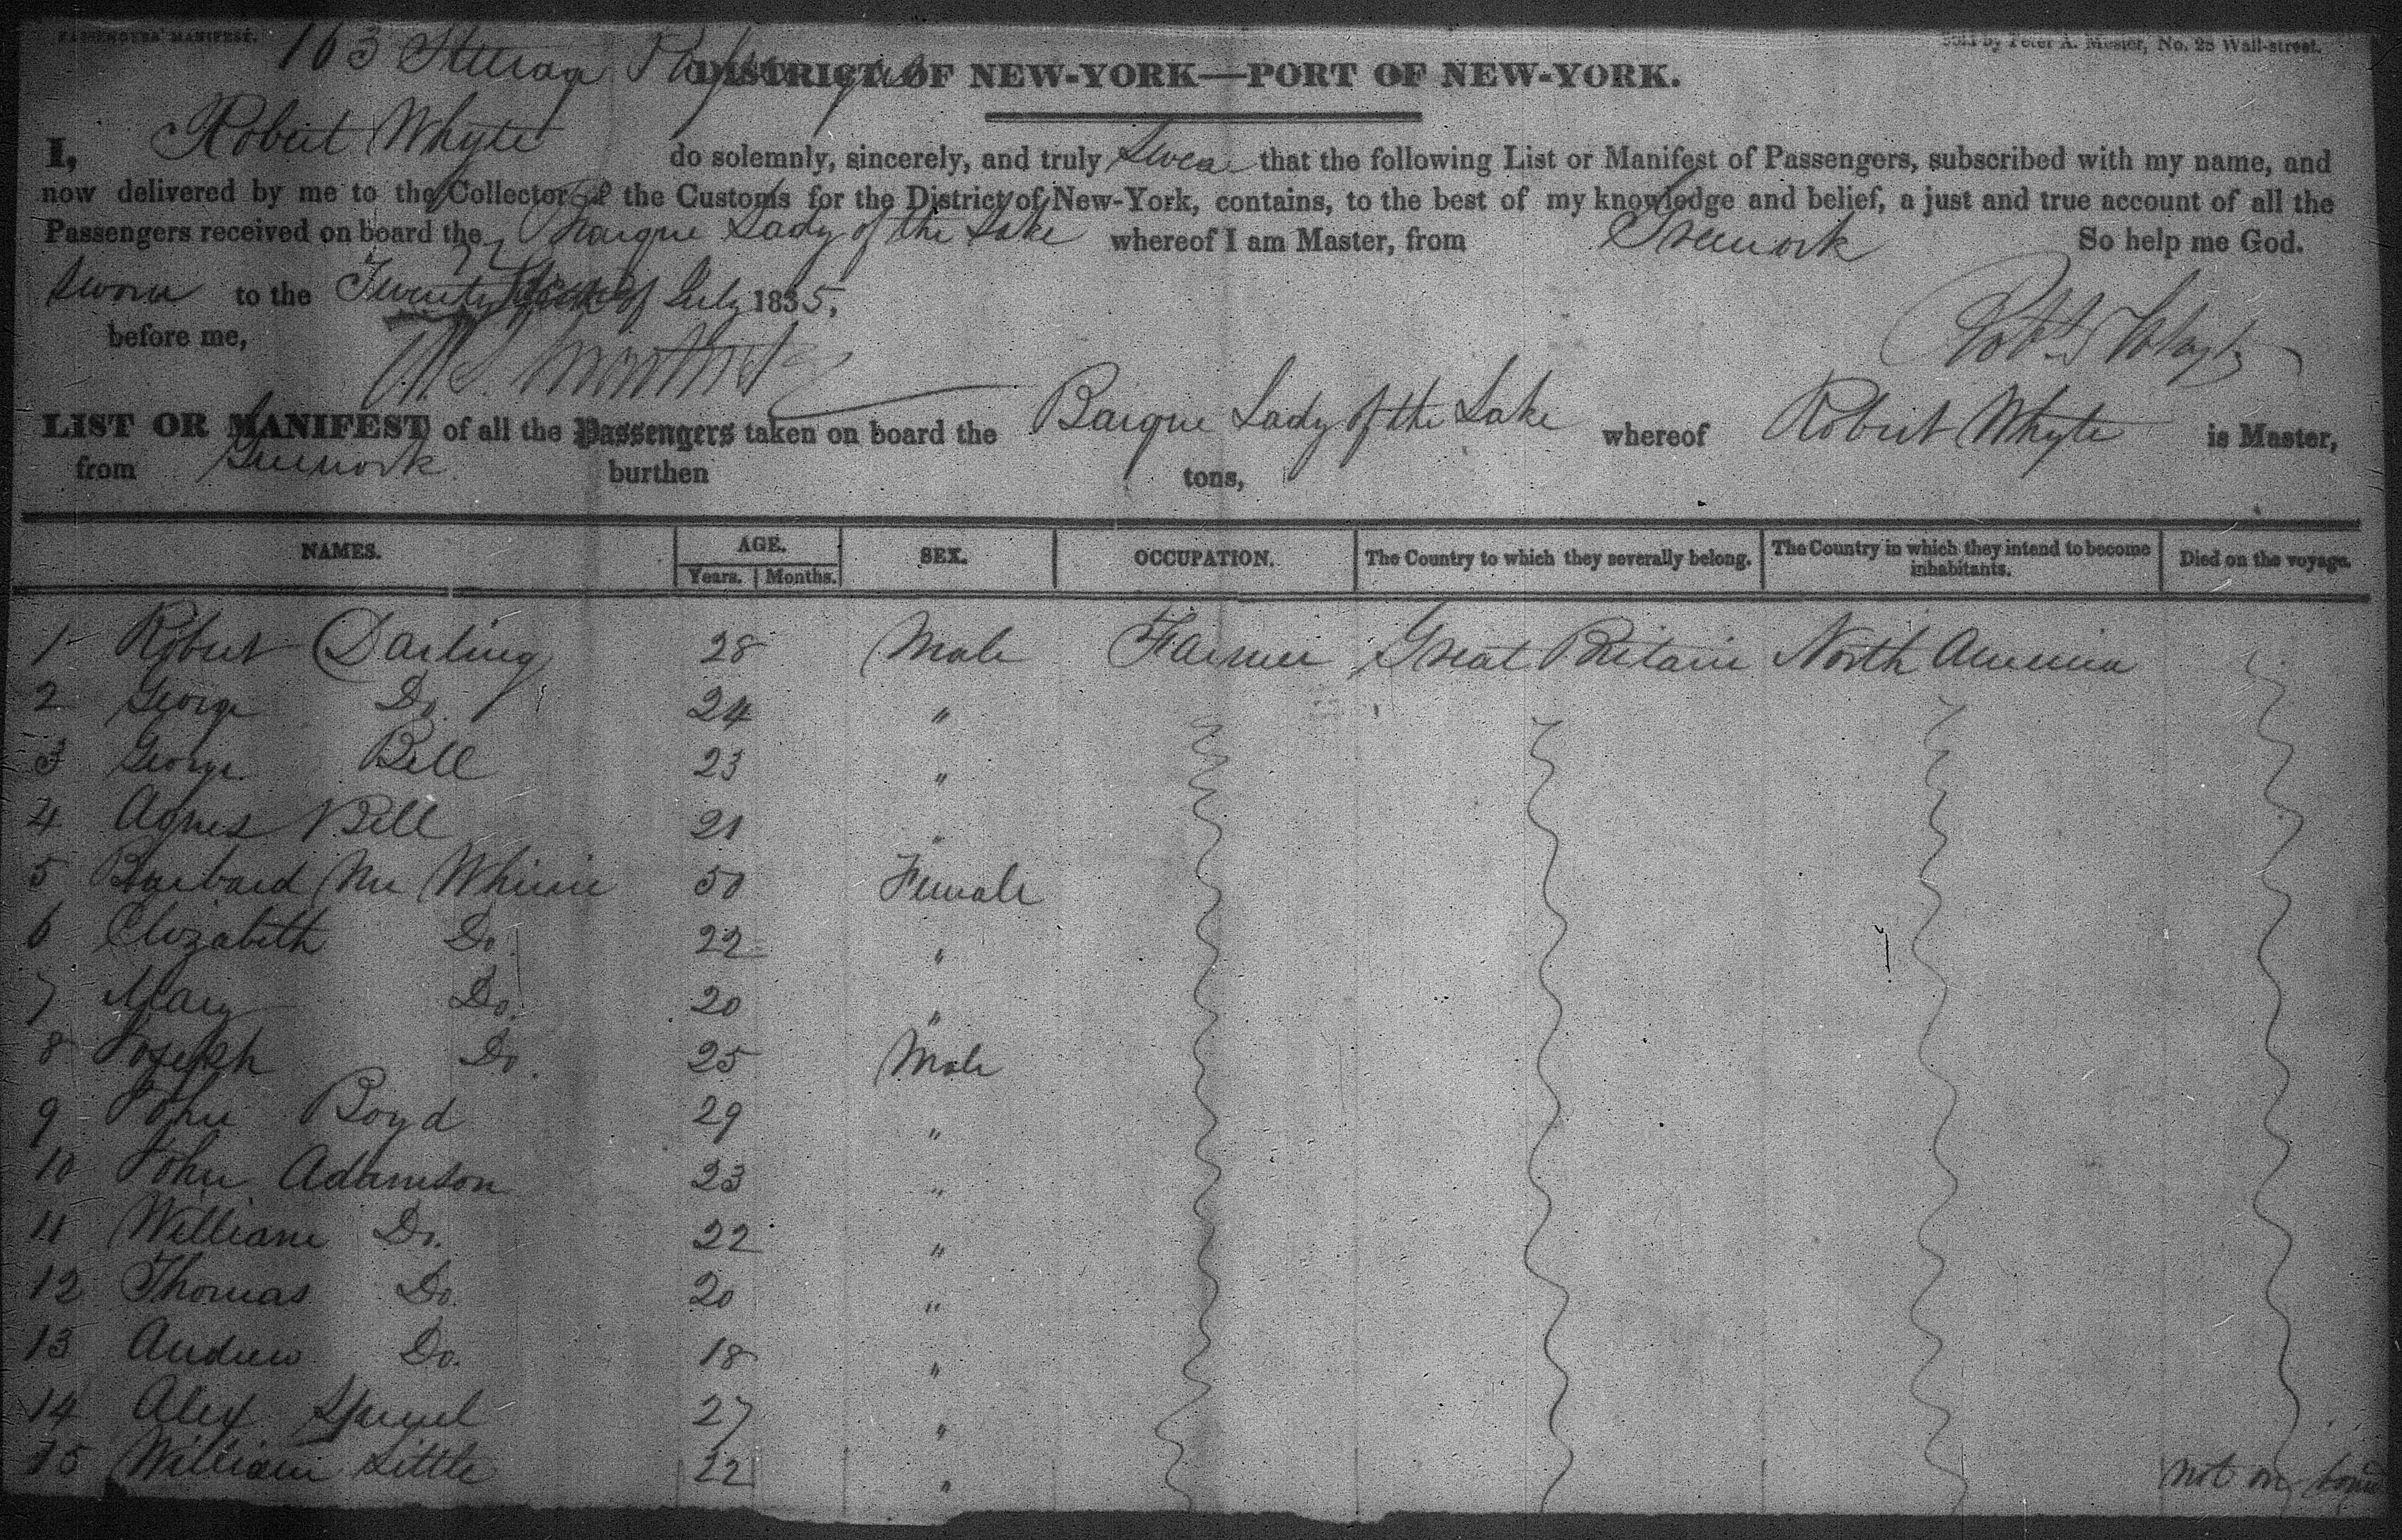 PASSENGERS' MANIFEST.
163 Steerage Passengers
Sold by Peter A. Mesier, No. 28 Wall-street.
DISTRICT OF NEW-YORK—PORT OF NEW-YORK.
I, Robert Whyte do solemnly, sincerely, and truly Swear that the following List or Manifest of Passengers, subscribed with my name, and
now delivered by me to the Collector of the Customs for the District of New-York, contains, to the best of my knowledge and belief, a just and true account of all the
Passengers received on board the Barque Lady of the Lake whereof I am Master, from Greenock So help me God.
Sworn to the Twenty of July 1835,
before me,
Robt Whyte
LIST OR MANIFEST of all the Passengers taken on board the Barque Lady of the Lake whereof Robert Whyte is Master,
from Greenock burthen tons,
NAMES. AGE. Years. Months. SEX. OCCUPATION. The Country to which they severally belong. The Country in which they intend to become inhabitants. Died on the voyage.
1 Robert Darling 28 Male Farmer Great Britain North America
2 George Do 24 "
3 George Bell 23 "
4 Agnes Bell 21 "
5 Mc Whinie 50 Female
6 Elizabeth Do 22 "
7 Mary Do. 20 "
8 Joseph Do. 25 Male
9 John Boyd 29 "
10 John Adamson 23 "
11 William Do. 22 "
12 Thomas Do. 20 "
13 Andrew Do. 18 "
14 Alex 27 "
15 William Little 22 " not on board